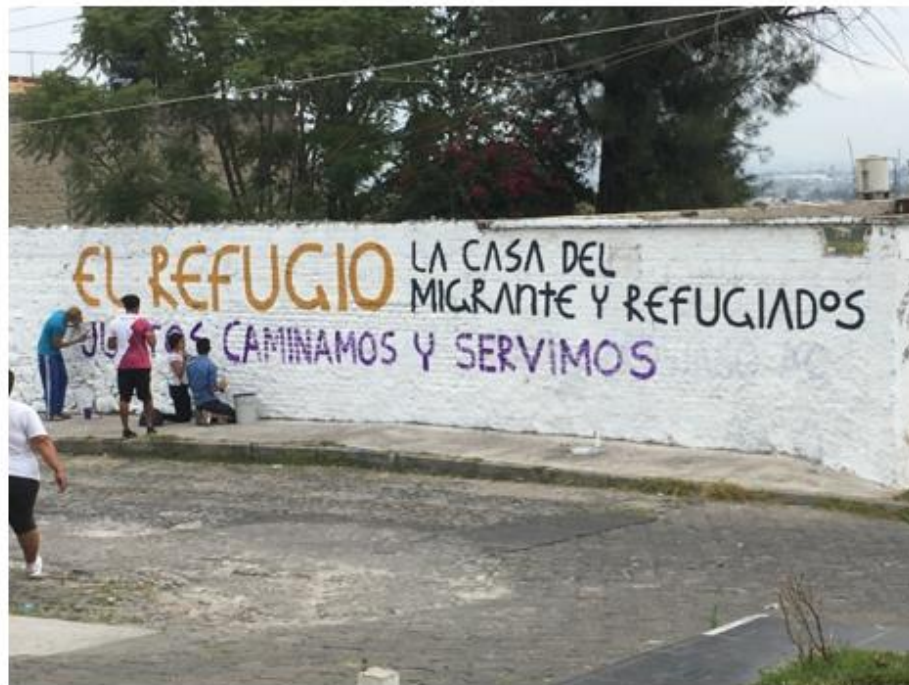 EL REFUGIO
LA CASA DEL
MIGRANTE Y REFUGIADOS
JUNTOS CAMINAMOS Y SERVIMOS